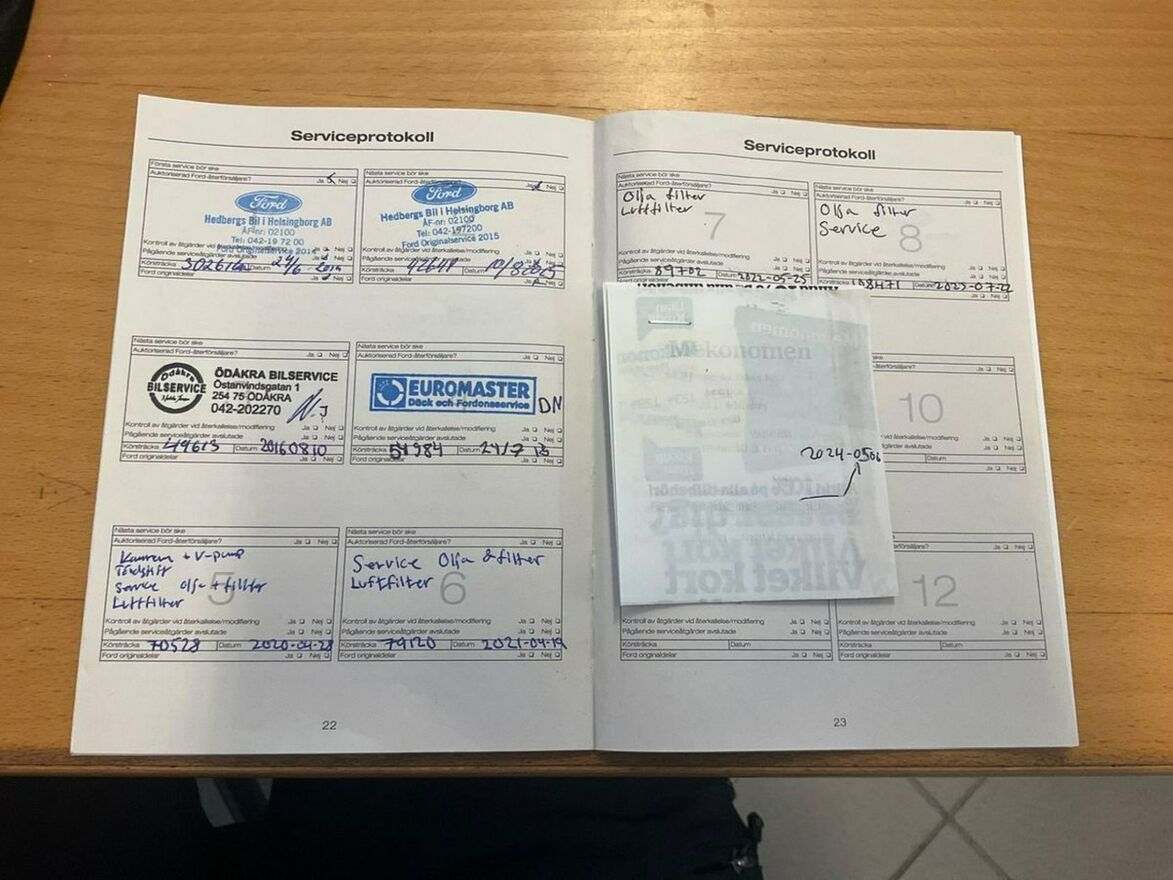 Serviceprotokoll
Första service bör ske
Auktoriserad Ford-återförsäljare? Ja Nej
Ford
Hedbergs Bil i Helsingborg AB
ÅF-nr: 02100
Tel: 042-19 72 00
Ford Originalservice 2014
Kontroll av åtgärder vid återkallelse/modifiering
Pågående serviceåtgärder avslutade
Körsträcka Datum 2014
Ford originaldelar Ja Nej
Nästa service bör ske
Auktoriserad Ford-återförsäljare? Ja Nej
Ford
Hedbergs Bil i Helsingborg AB
ÅF-nr: 02100
Tel: 042-197200
Ford Originalservice 2015
Kontroll av åtgärder vid återkallelse/modifiering
Pågående serviceåtgärder avslutade
Körsträcka Datum
Ford originaldelar Ja Nej
Nästa service bör ske
Auktoriserad Ford-återförsäljare? Ja Nej
Ödåkra
BILSERVICE
ÖDÅKRA BILSERVICE
Östanvindsgatan 1
254 75 ÖDÅKRA
042-202270
Kontroll av åtgärder vid återkallelse/modifiering Ja Nej
Pågående serviceåtgärder avslutade Ja Nej
Körsträcka 49613 Datum 20160810
Ford originaldelar Ja Nej
Nästa service bör ske
Auktoriserad Ford-återförsäljare? Ja Nej
EUROMASTER
Däck och Fordonsservice DN
Kontroll av åtgärder vid återkallelse/modifiering Ja Nej
Pågående serviceåtgärder avslutade Ja Nej
Körsträcka 51984 Datum
Ford originaldelar Ja Nej
Nästa service bör ske
Auktoriserad Ford-återförsäljare? Ja Nej
Kamrem + V-pump
Tändstift
Service olja + filter
Luftfilter
5
Kontroll av åtgärder vid återkallelse/modifiering Ja Nej
Pågående serviceåtgärder avslutade Ja Nej
Körsträcka 70528 Datum 2020-04-28
Ford originaldelar Ja Nej
Nästa service bör ske
Auktoriserad Ford-återförsäljare? Ja Nej
Service Olja & filter
Luftfilter
6
Kontroll av åtgärder vid återkallelse/modifiering Ja Nej
Pågående serviceåtgärder avslutade Ja Nej
Körsträcka 79120 Datum 2021-04-19
Ford originaldelar Ja Nej
22
Serviceprotokoll
Nästa service bör ske
Auktoriserad Ford-återförsäljare? Ja Nej
Olja filter
Luftfilter
7
Kontroll av åtgärder vid återkallelse/modifiering Ja Nej
Pågående serviceåtgärder avslutade Ja Nej
Körsträcka 89702 Datum 2022-05-25
Nästa service bör ske
Auktoriserad Ford-återförsäljare? Ja Nej
Olja filter
Service
8
Kontroll av åtgärder vid återkallelse/modifiering Ja Nej
Pågående serviceåtgärder avslutade Ja Nej
Körsträcka 108471 Datum 2023-07-22
Ford originaldelar Ja Nej
Mekonomen
2024-0506
Vilket kort
10
Datum
Ja Nej
12
Kontroll av åtgärder vid återkallelse/modifiering Ja Nej
Pågående serviceåtgärder avslutade Ja Nej
Körsträcka Datum
Ford originaldelar Ja Nej
Kontroll av åtgärder vid återkallelse/modifiering Ja Nej
Pågående serviceåtgärder avslutade Ja Nej
Körsträcka Datum
Ford originaldelar Ja Nej
23